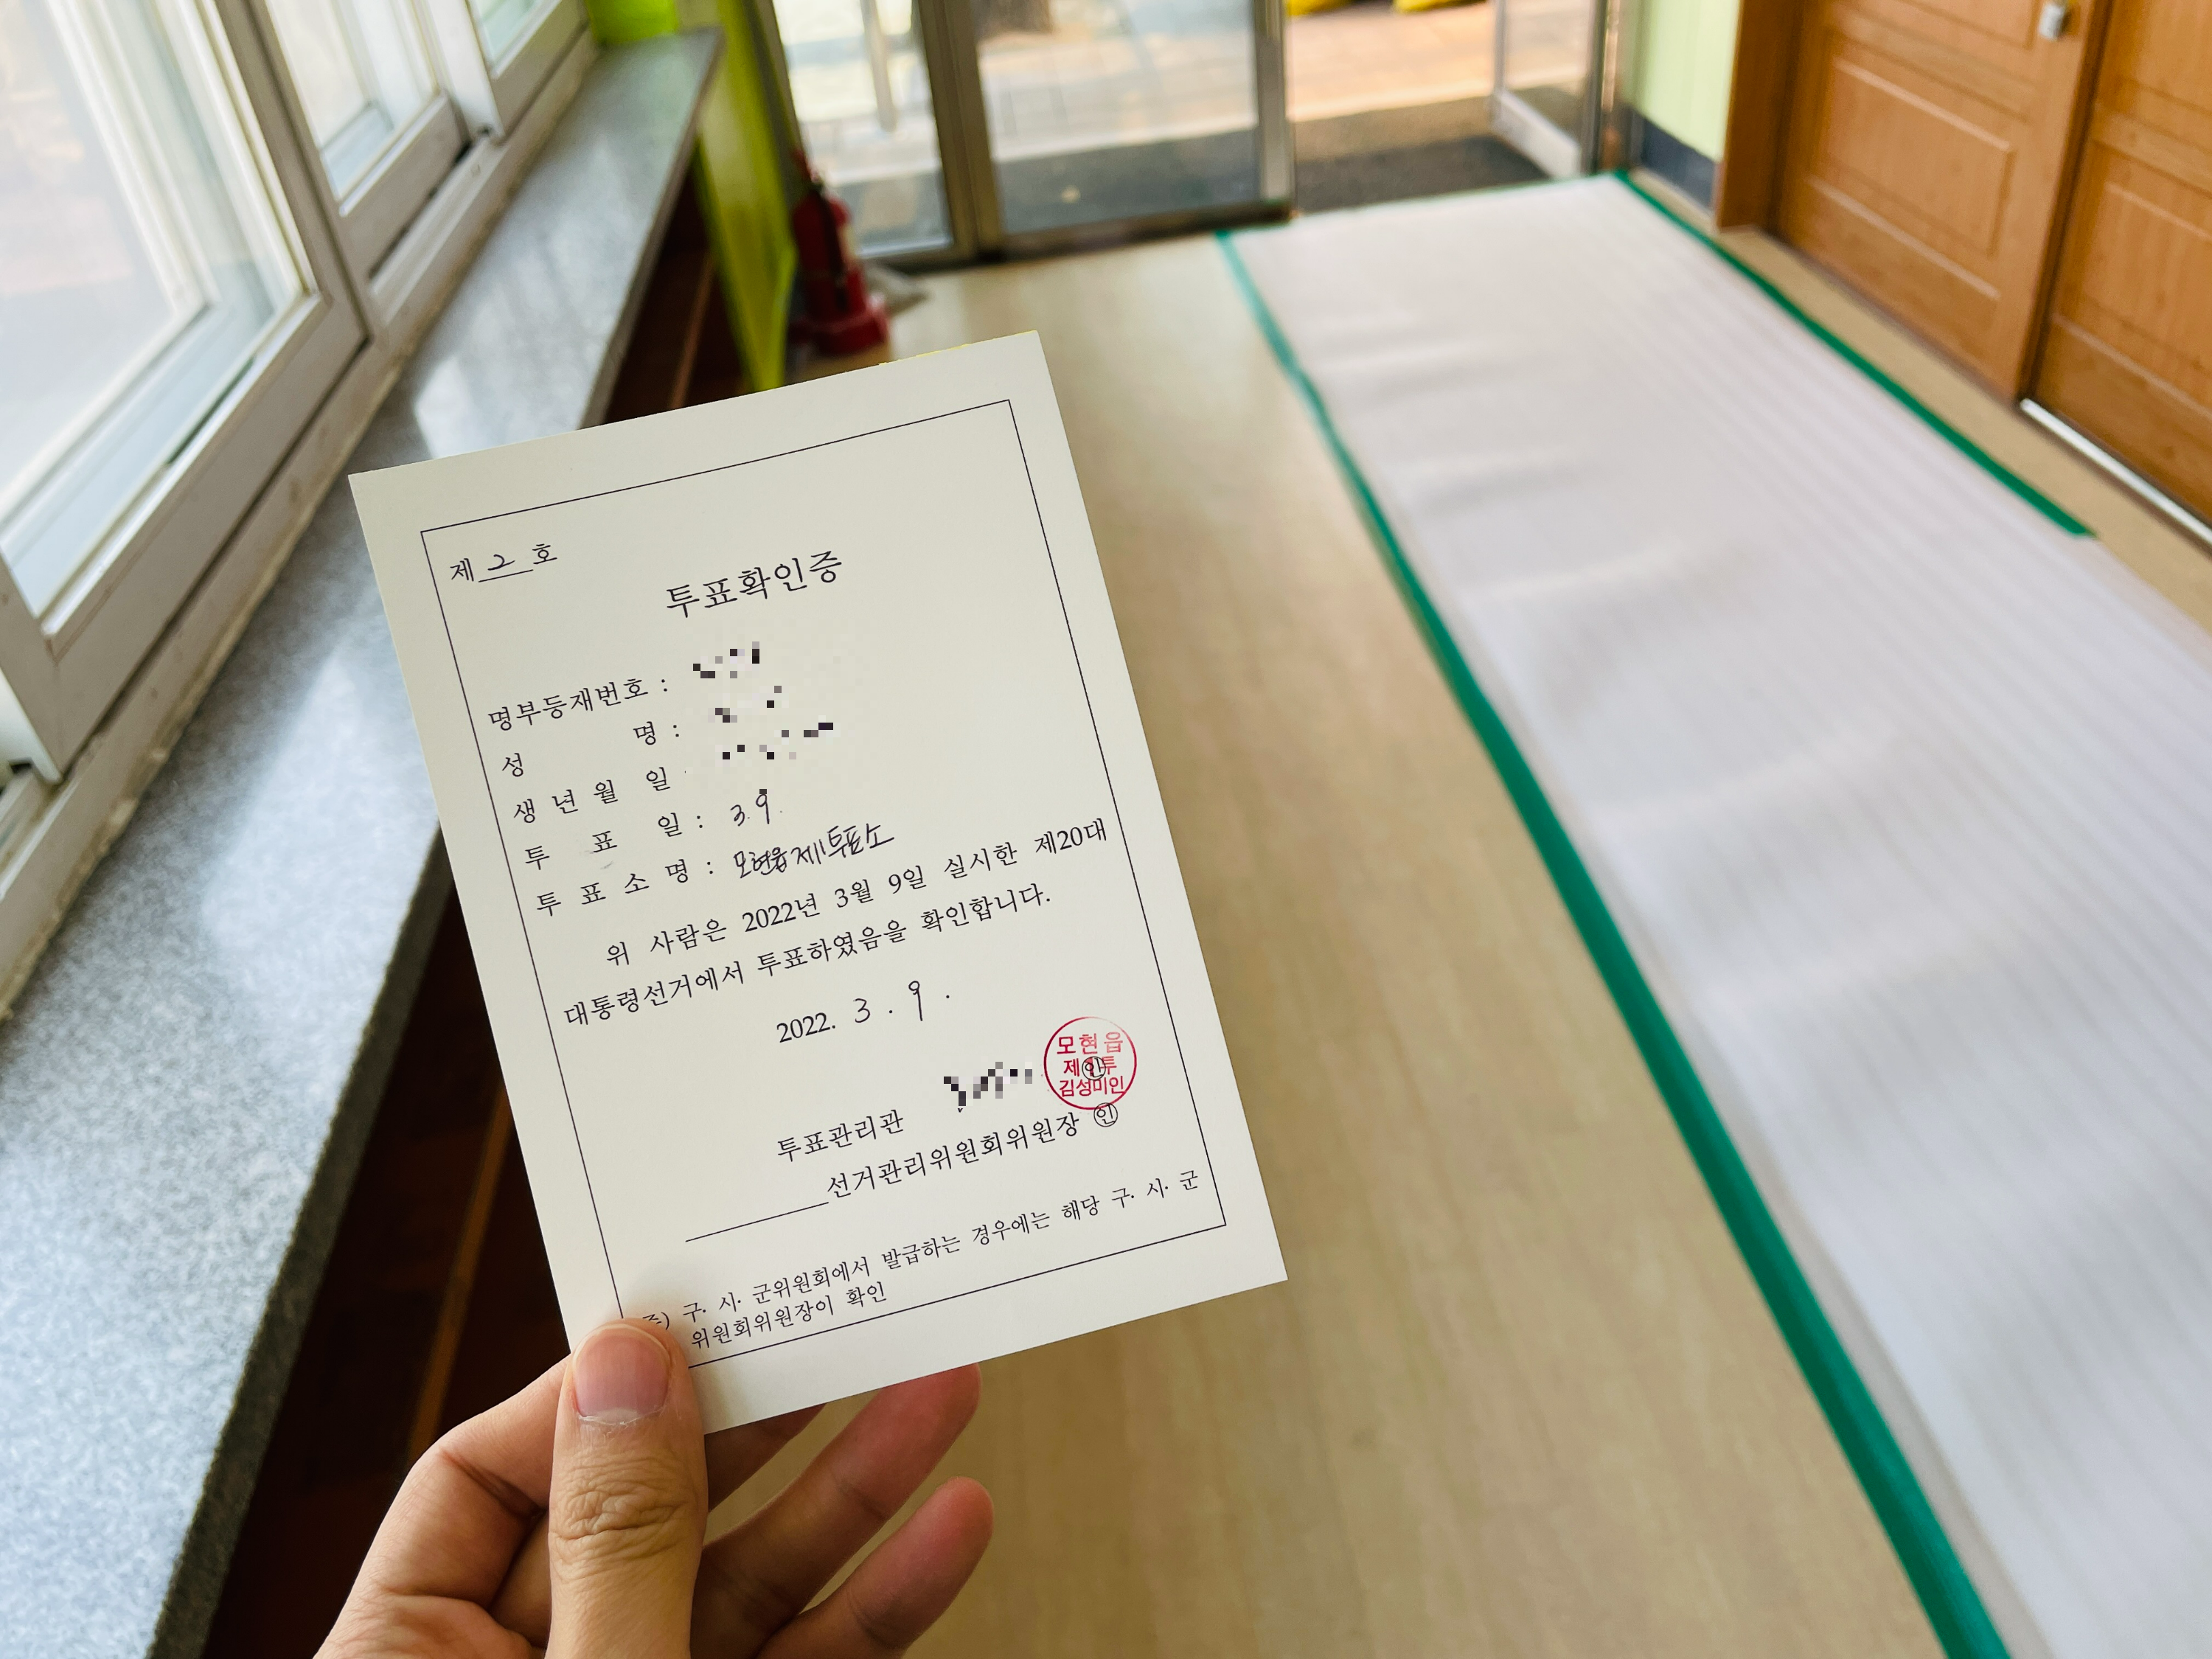 제 2 호
투표확인증
명부등재번호 :
성 명 :
생 년 월 일
투 표 일 : 3. 9.
투 표 소 명 : 모현읍 제1투표소
위 사람은 2022년 3월 9일 실시한 제20대
대통령선거에서 투표하였음을 확인합니다.
2022. 3 . 9 .
모현읍
투표관리관
김성미인
선거관리위원회위원장 ㊞
구· 시· 군위원회에서 발급하는 경우에는 해당 구· 시· 군
위원회위원장이 확인